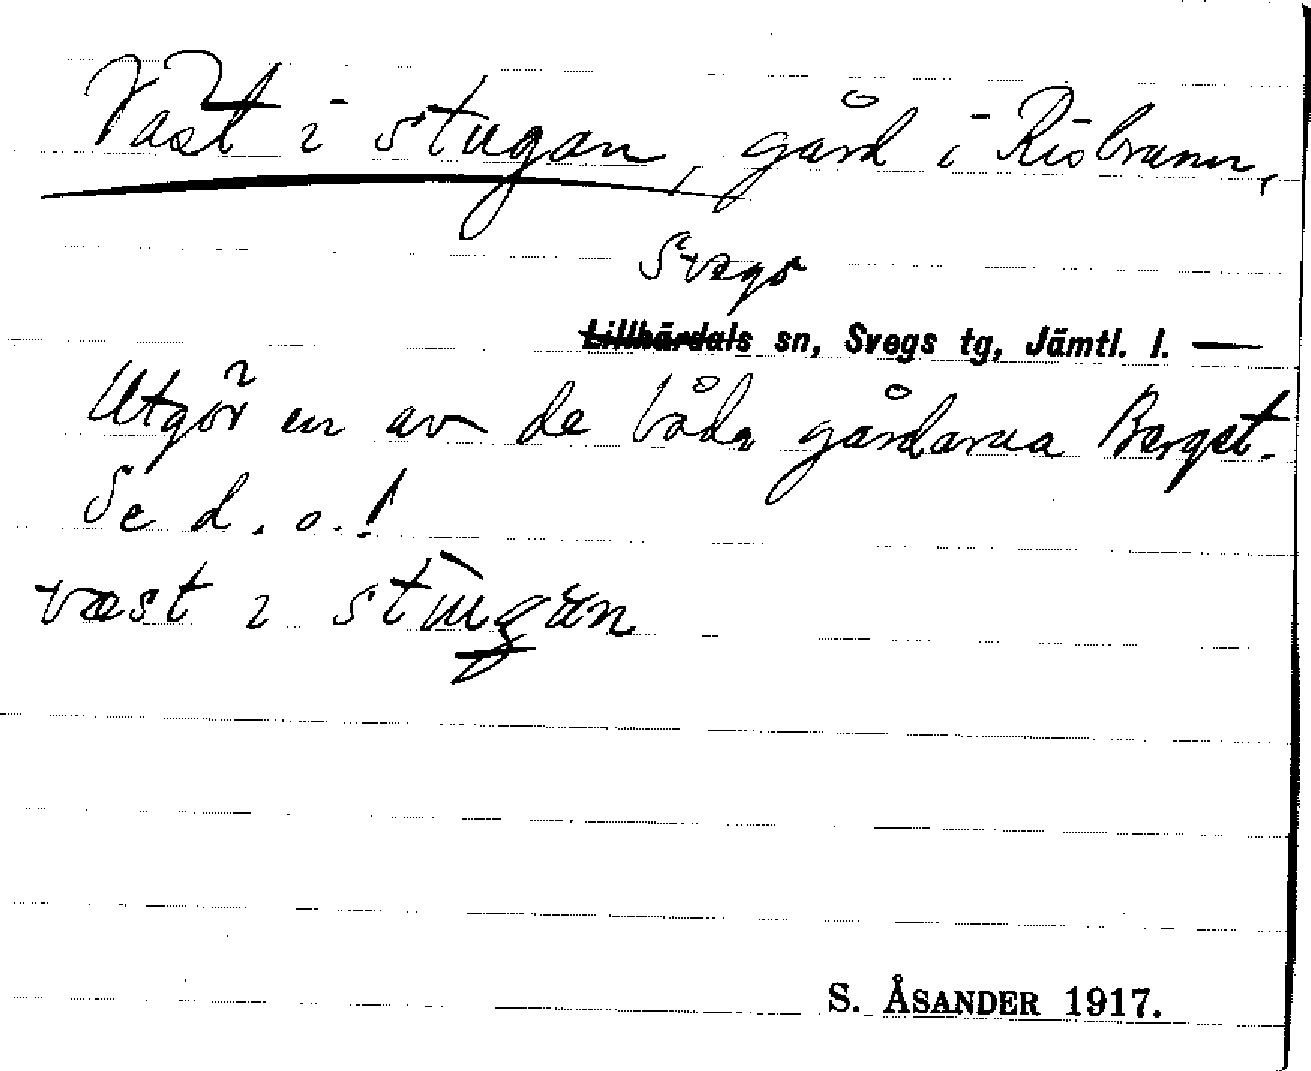 Väst i stugan, gård i Risbrunn,
Svegs
Lillhärdals sn, Svegs tg, Jämtl. l. —
Utgör en av de båda gårdarna Berget.
Se d. o.!
væst i stùgän
S. ÅSANDER 1917.